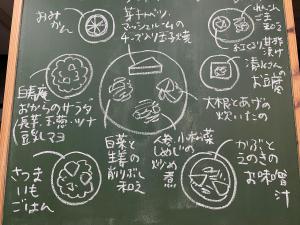 おみかん
芽キャベツ、
マッシュルームの
チーズ入り玉子焼
れんこん
ごま
和え
紅くるり甘酢
漬け
湯どうふ
のお豆腐
白寿庵
おからのサラダ
長芋・玉葱・ツナ
豆乳マヨ
大根とあげの
炊いたの
白菜と
生姜の
削りぶし
和え
小松菜
しめじの
炒め
煮
さつま
いも
ごはん
かぶと
えのきの
お味噌
汁